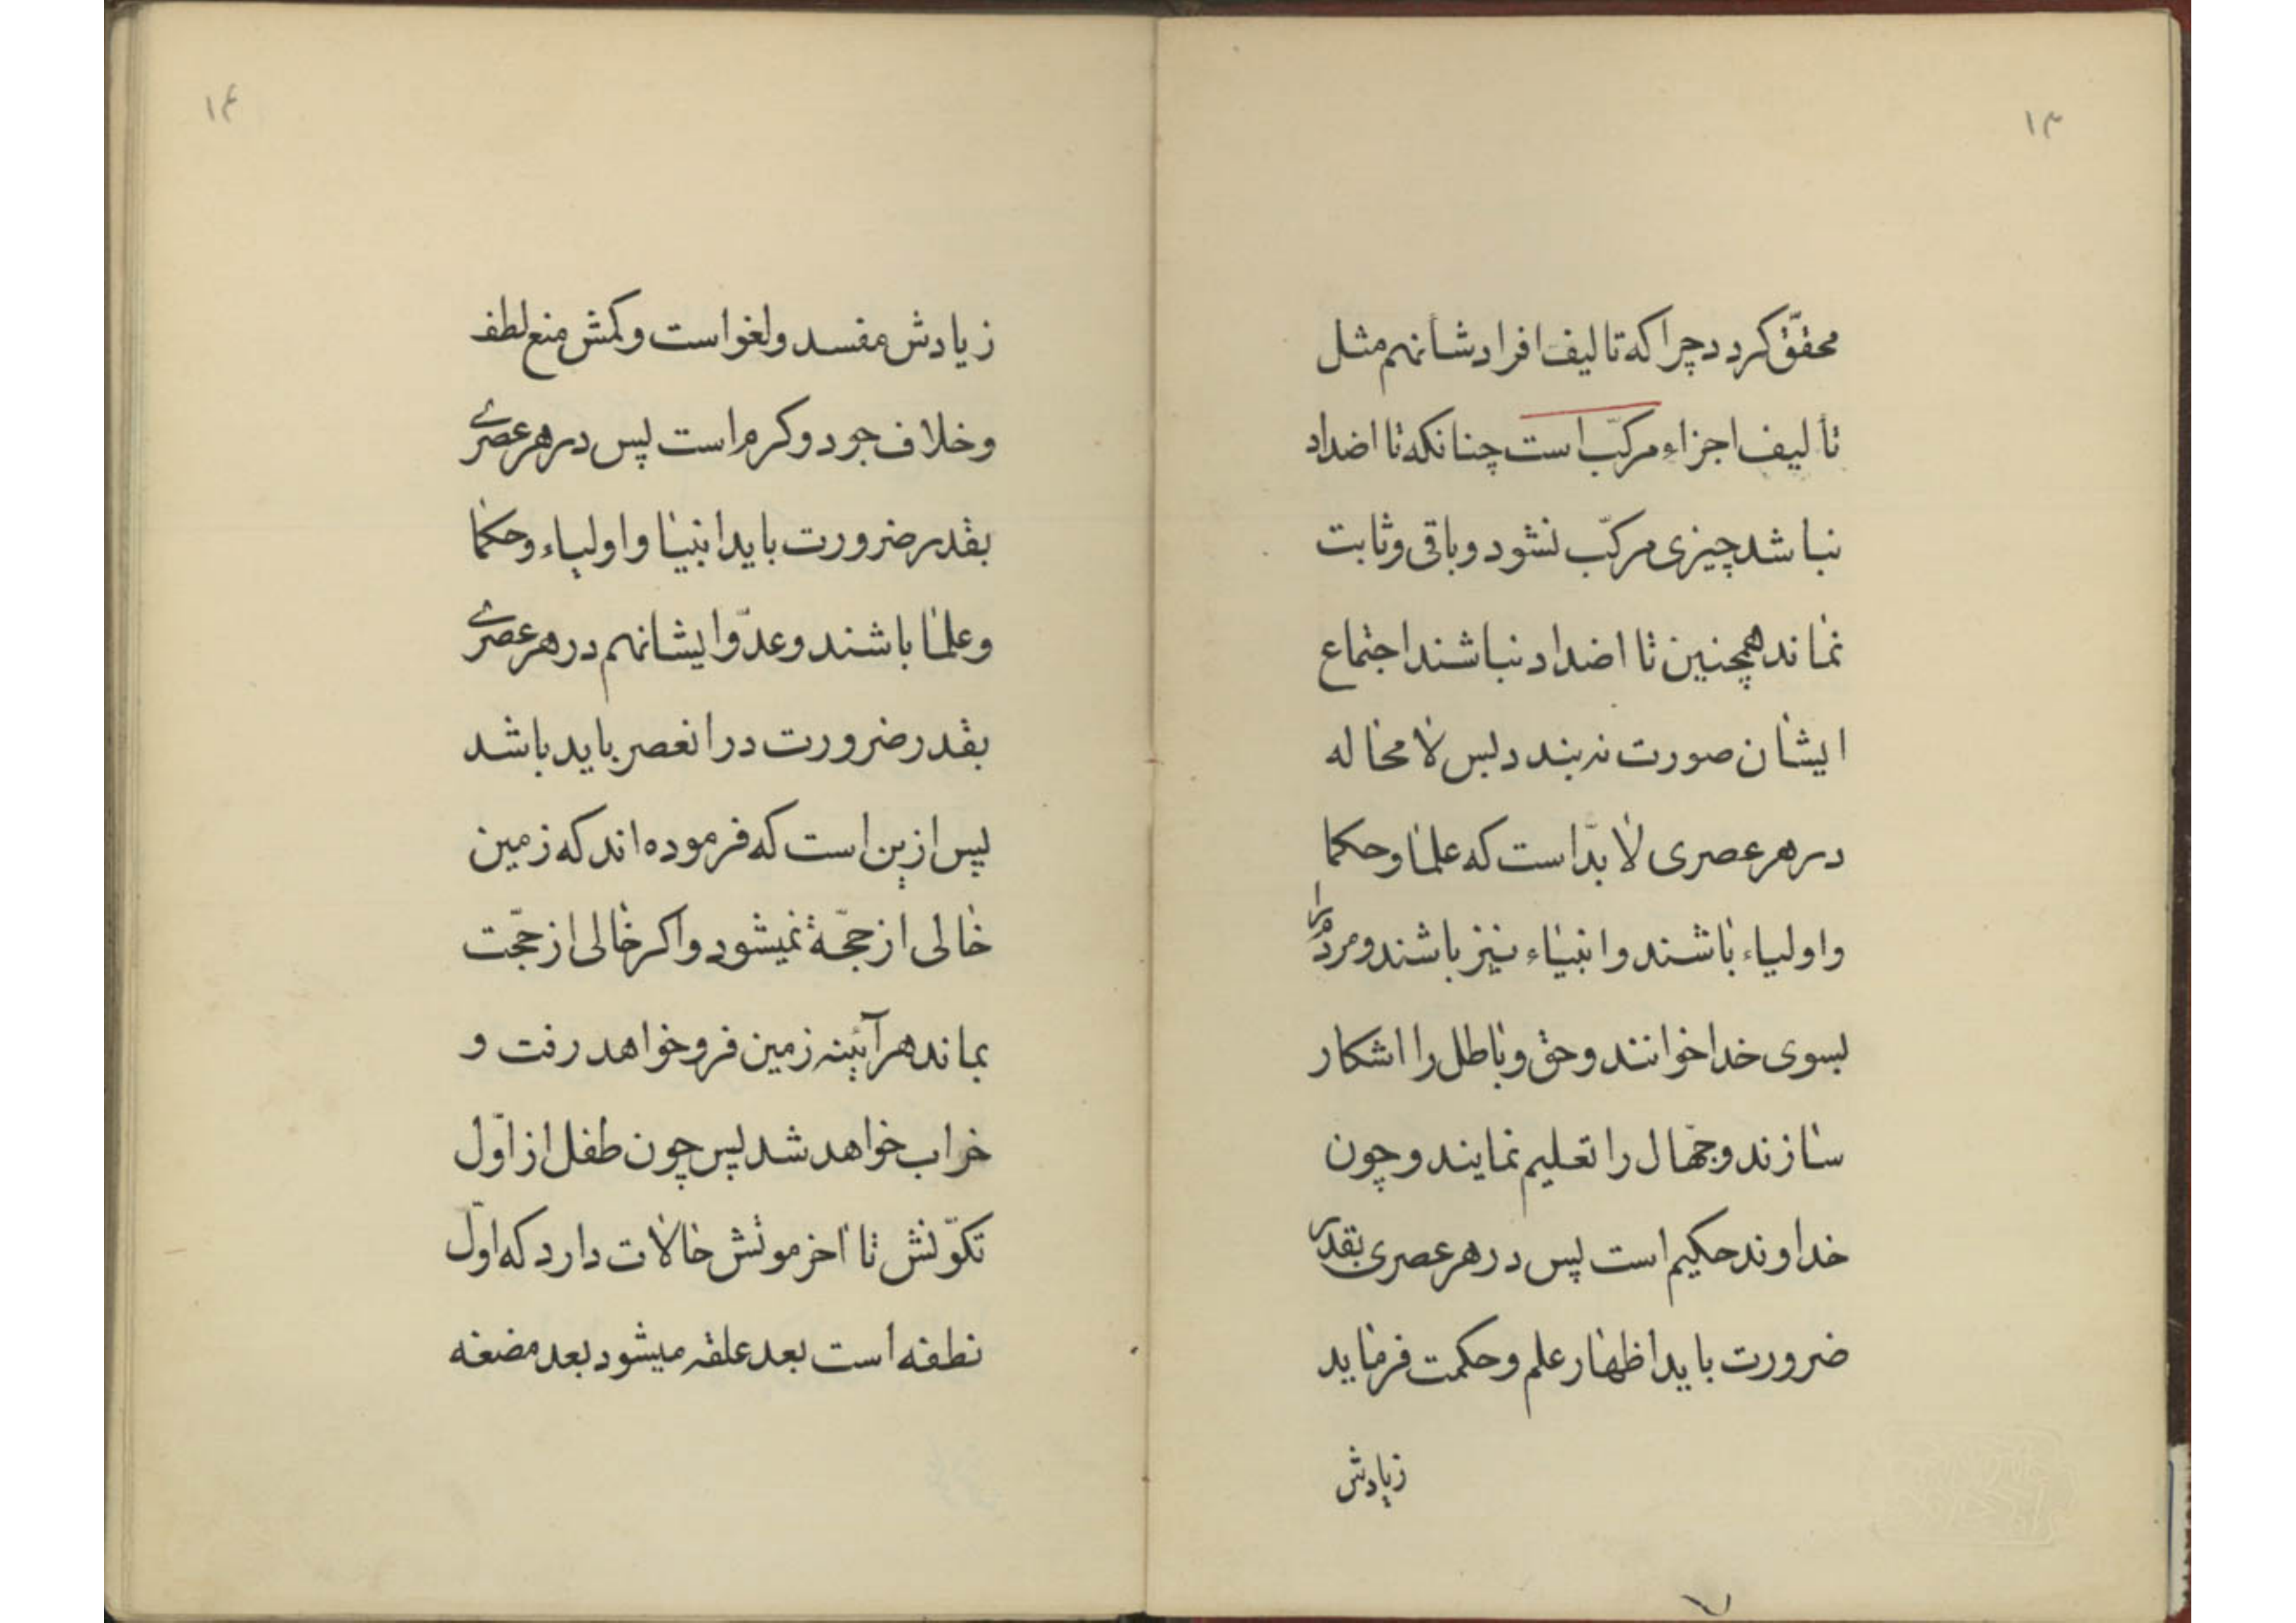 ۱۳
محقّق کردد چرا که تالیف افرادشانهم مثل
تألیف اجزاء مرکّب است چنانکه تا اضداد
نباشد چیزی مرکّب نشود و باقی و ثابت
نماند همچنین تا اضداد نباشند اجتماع
ایشان صورت نه بندد لپس لا محاله
در هر عصری لا بدّ است که علما و حکما
و اولیاء باشند و انبیاء نیز باشند و مردم را
بسوی خدا خوانند و حق و باطل را اشکار
سازند و جهّال را تعلیم نمایند و چون
خداوند حکیم است پس در هر عصری بقدر
ضرورت باید اظهار علم و حکمت فرماید
زیادش
۱۴
زیادش مفسد و لغو است و کمش منع لطف
و خلاف جود و کرم است پس در هر عصری
بقدر ضرورت باید انبیا و اولیاء و حکما
و علما باشند و عدّو ایشانهم در هر عصری
بقدر ضرورت در انعصر باید باشد
پس ازین است که فرموده اند که زمین
خالی از حجّة نمیشود و اکر خالی از حجّت
بماند هر آئینه زمین فرو خواهد رفت و
خراب خواهد شد پس چون طفل از اوّل
تکوّنش تا اخر موتش حالات دارد که اوّل
نطفه است بعد علقه میشود بعد مضغه